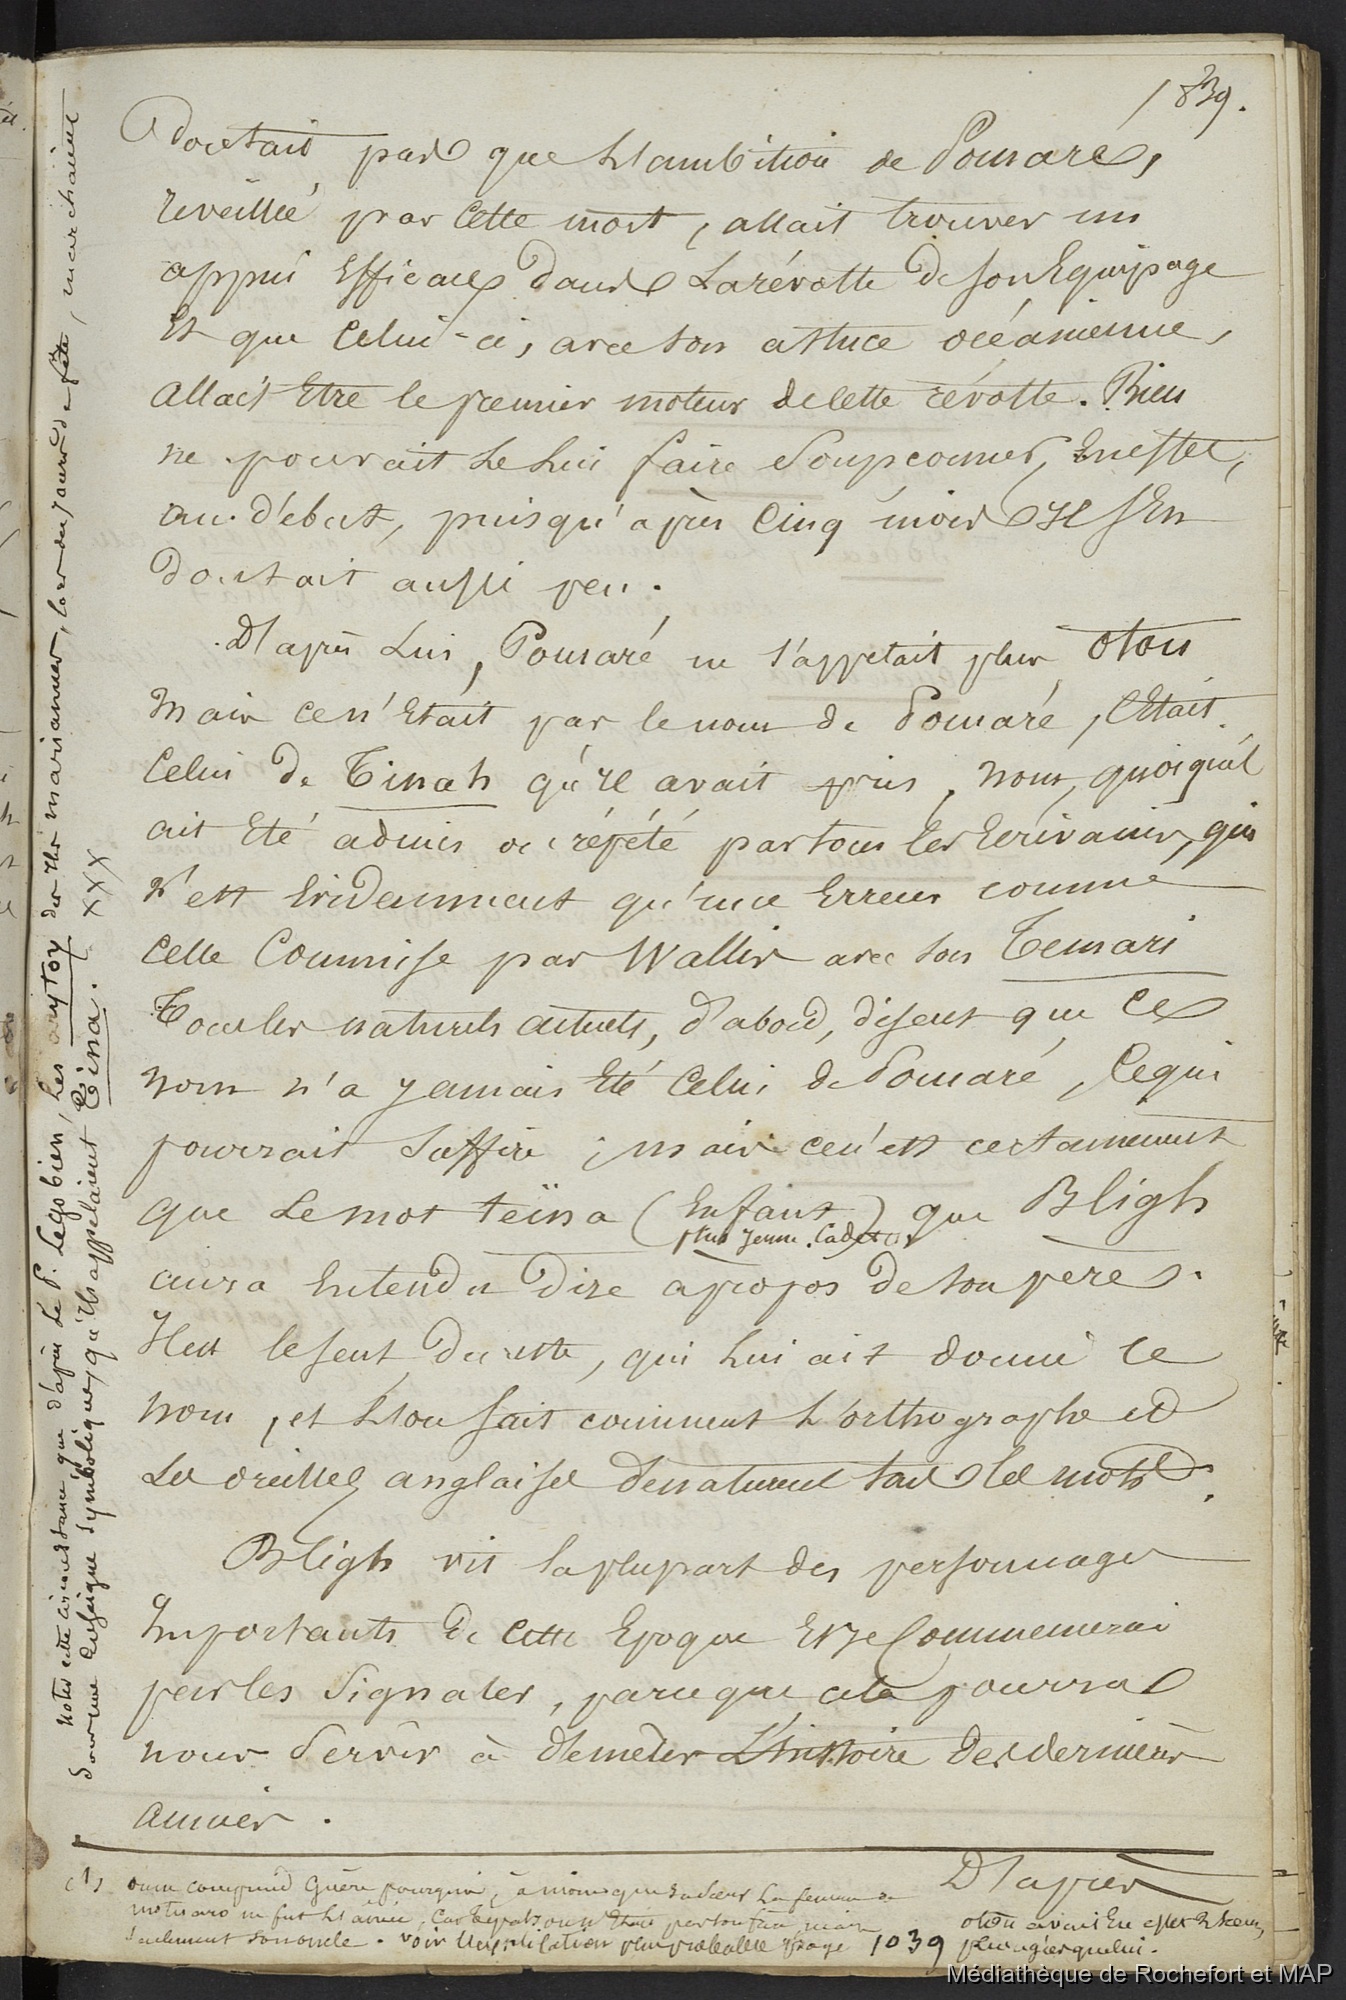 1839.
doutait pas que l'ambition de Pomaré,
reveillée par cette mort, allait trouver un
appui Efficace dans La révolte de son Equipage
Et que celui-ci, avec son astuce océanienne,
allait Etre le premier moteur de cette révolte. Rien
ne pouvait le lui faire soupconner, En effet,
au début, puisqu'après Cinq mois Il s'En
doutait aussi peu.
D'après Lui, Pomaré ne s'appelait plus Otou
Mais ce n'Etait pas le nom de Pomaré, c'Etait
Celui de Tinah qu'Il avait pris, nom, quoiqu'il
ait Eté admis ou répété par tous les Ecrivains, qui
n'est Evidemment qu'une Erreur comme
celle Commise par Wallis avec son Temari
Tous les naturels actuels, d'abord, disent que ce
nom n'a jamais Eté Celui de Pomaré, Ce qui
pourrait suffire ; mais ce n'est certainement
que Le mot teïna (Enfant) que Bligh
plus jeune. Cadet
aura Entendu Dire apropos de son père.
Il est le seul, du reste, qui Lui ait donné ce
nom, et L'on sait comment L'orthographe et
Les oreilles anglaises denaturent tous les mots.
Bligh vit la plupart des personnages
Importants de cette Epoque Et Je Commencerai
par les signaler, parceque cela pourra
nous servir à démêler L'histoire des dernières
années.
D'après
(1) on ne comprend Guère pourquoi, à moins que sa sœur La femme de
motuaro ne fut L'ainée, Car Tepahoo n'Etait pas son frère, mais
seulement son oncle. Voir L'explication plus probable page 1039
otou avait En effet 2 sœurs,
plus agées que lui.
Noter cette circonstance que d'après Le P. Legobien, Les arytoy des Iles mariannes, lors des jours de fête, marchaient
sous une Enseigne symbolique, qu'Ils appelaient Tina. XXX
Médiathèque de Rochefort et MAP